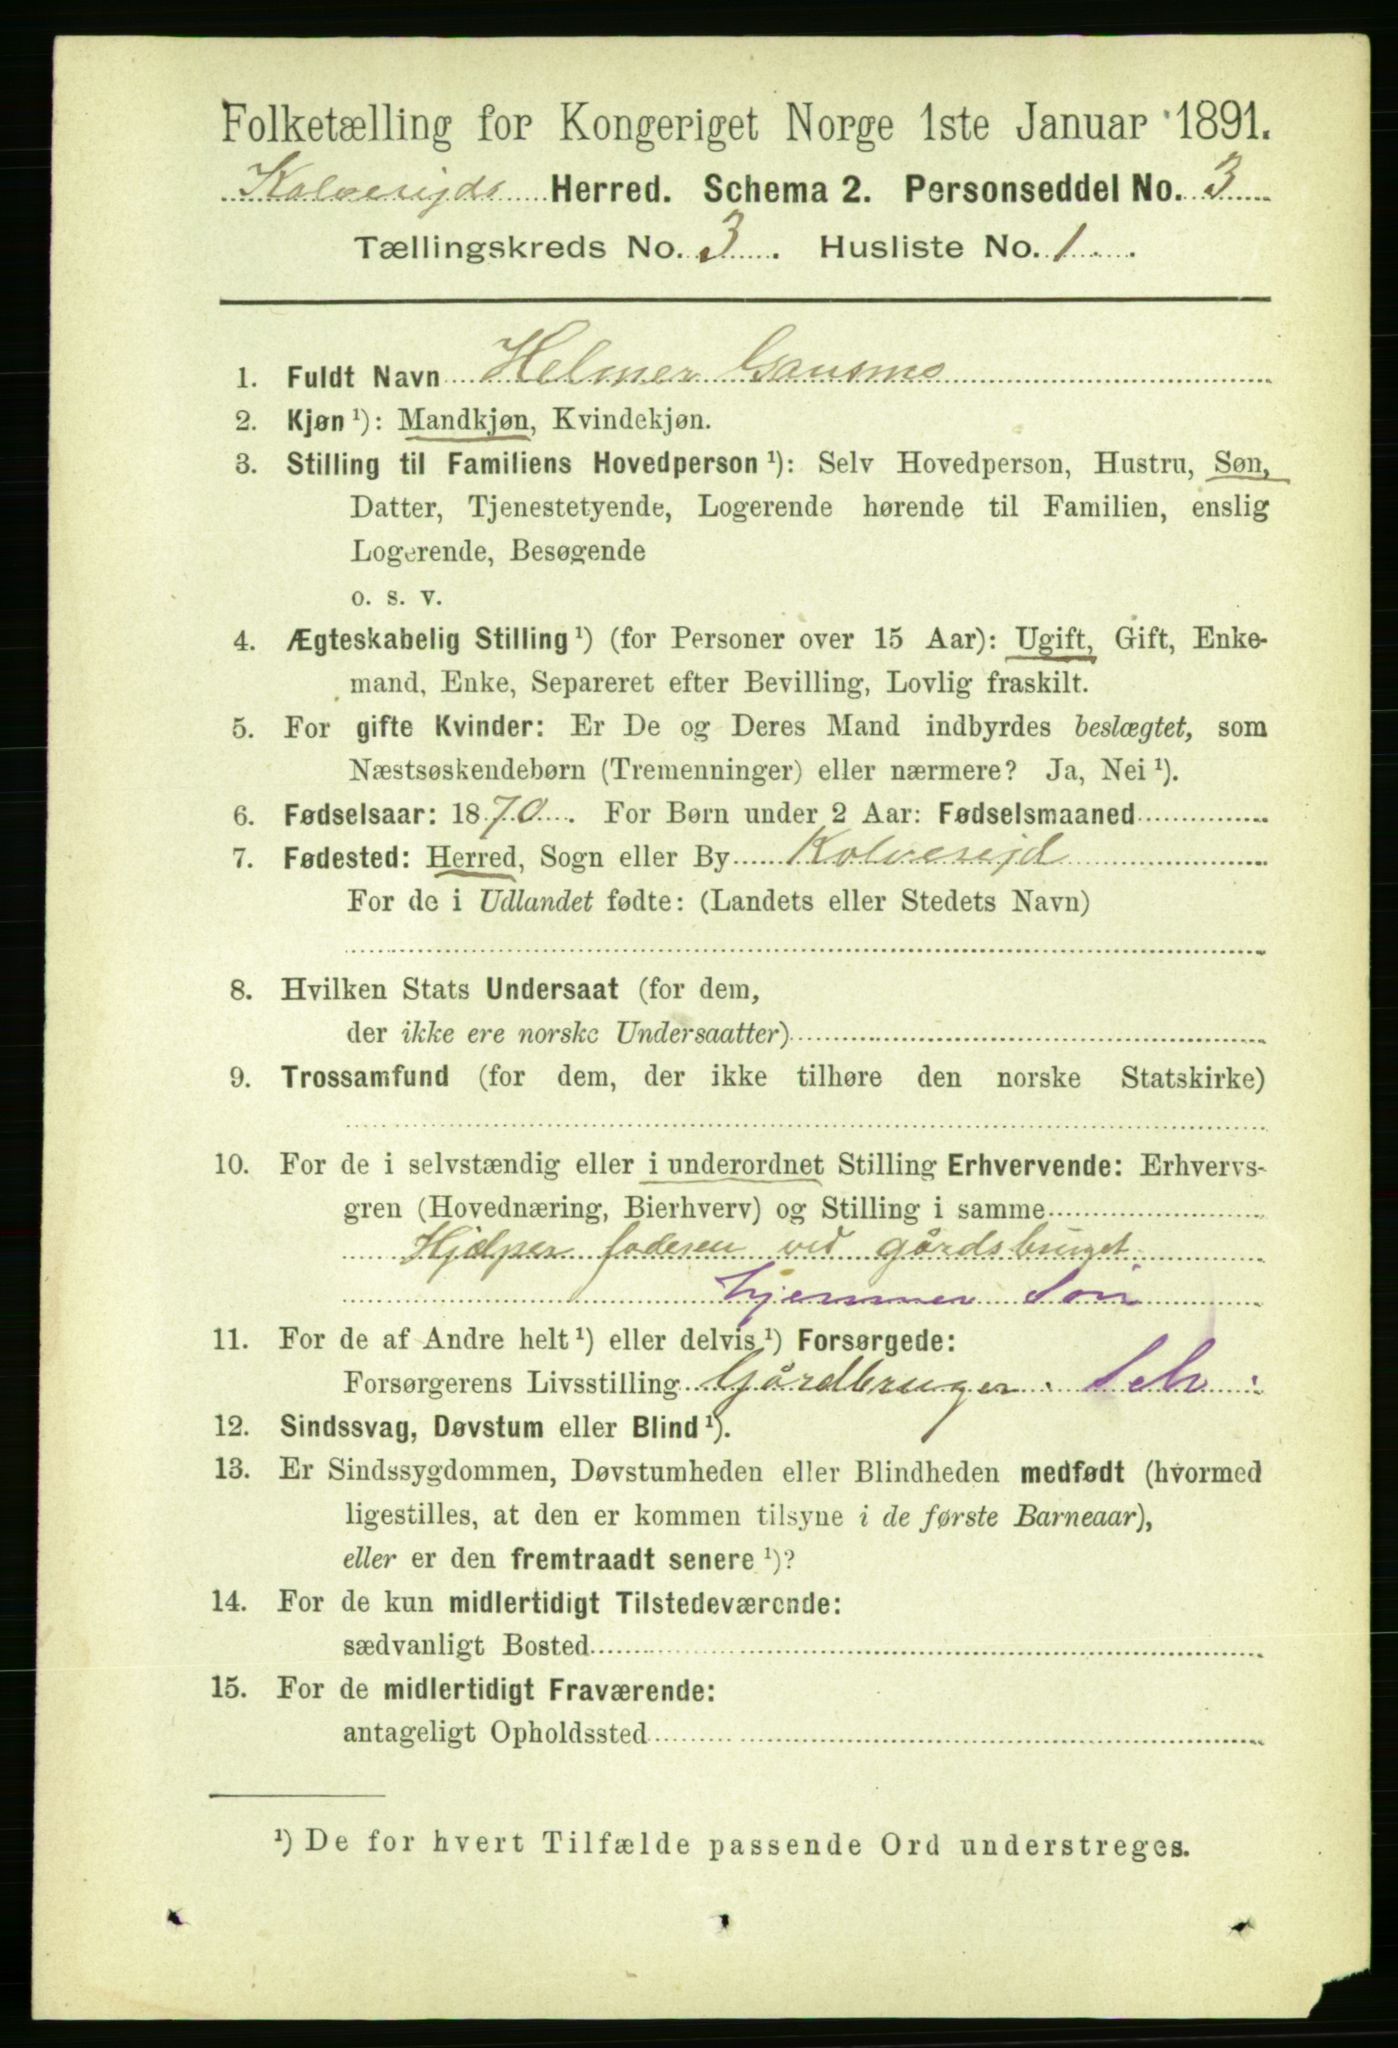 Folketælling for Kongeriget Norge 1ste Januar 1891.
Kolvereids Herred. Schema 2. Personseddel No. 3
Tællingskreds No. 3. Husliste No. 1
1. Fuldt Navn Helmer Gansmo
2. Kjøn ¹): Mandkjøn, Kvindekjøn.
3. Stilling til Familiens Hovedperson ¹): Selv Hovedperson, Hustru, Søn,
Datter, Tjenestetyende, Logerende hørende til Familien, enslig
Logerende, Besøgende
o. s. v.
4. Ægteskabelig Stilling ¹) (for Personer over 15 Aar): Ugift, Gift, Enke-
mand, Enke, Separeret efter Bevilling, Lovlig fraskilt.
5. For gifte Kvinder: Er De og Deres Mand indbyrdes beslægtet, som
Næstsøskendebørn (Tremenninger) eller nærmere? Ja, Nei ¹).
6. Fødselsaar: 1870. For Børn under 2 Aar: Fødselsmaaned
7. Fødested: Herred, Sogn eller By Kolvereid
For de i Udlandet fødte: (Landets eller Stedets Navn)
8. Hvilken Stats Undersaat (for dem,
der ikke ere norske Undersaatter)
9. Trossamfund (for dem, der ikke tilhøre den norske Statskirke)
10. For de i selvstændig eller i underordnet Stilling Erhvervende: Erhvervs-
gren (Hovednæring, Bierhverv) og Stilling i samme
Hjælper faderen ved gårdsbruget
hjemmev Søn
11. For de af Andre helt ¹) eller delvis ¹) Forsørgede:
Forsørgerens Livsstilling Gårdbruger. Selv
12. Sindssvag, Døvstum eller Blind ¹).
13. Er Sindssygdommen, Døvstumheden eller Blindheden medfødt (hvormed
ligestilles, at den er kommen tilsyne i de første Barneaar),
eller er den fremtraadt senere ¹)?
14. For de kun midlertidigt Tilstedeværende:
sædvanligt Bosted
15. For de midlertidigt Fraværende:
antageligt Opholdssted
¹) De for hvert Tilfælde passende Ord understreges.